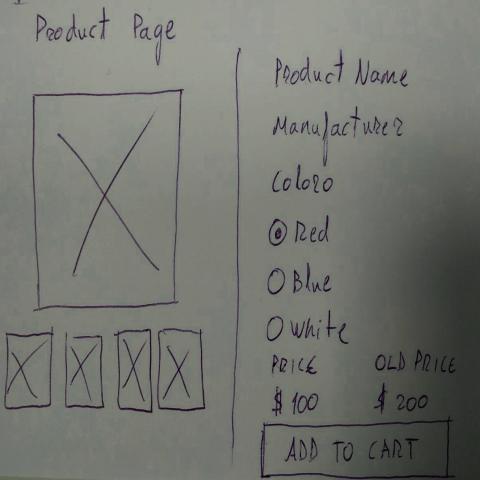 Product Page
Product Name
Manufacturer
Coloro
Red
Blue
White
PRICE OLD PRICE
$100 $200
ADD TO CART